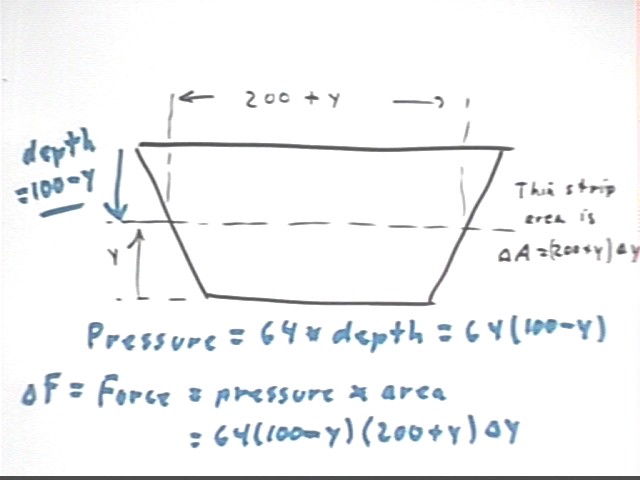 200 + y
depth
= 100 - y
Thin strip
area is
ΔA = (200+y) Δy
y
Pressure = 64 * depth = 64(100-y)
ΔF = Force = pressure * area
= 64(100-y)(200+y) Δy